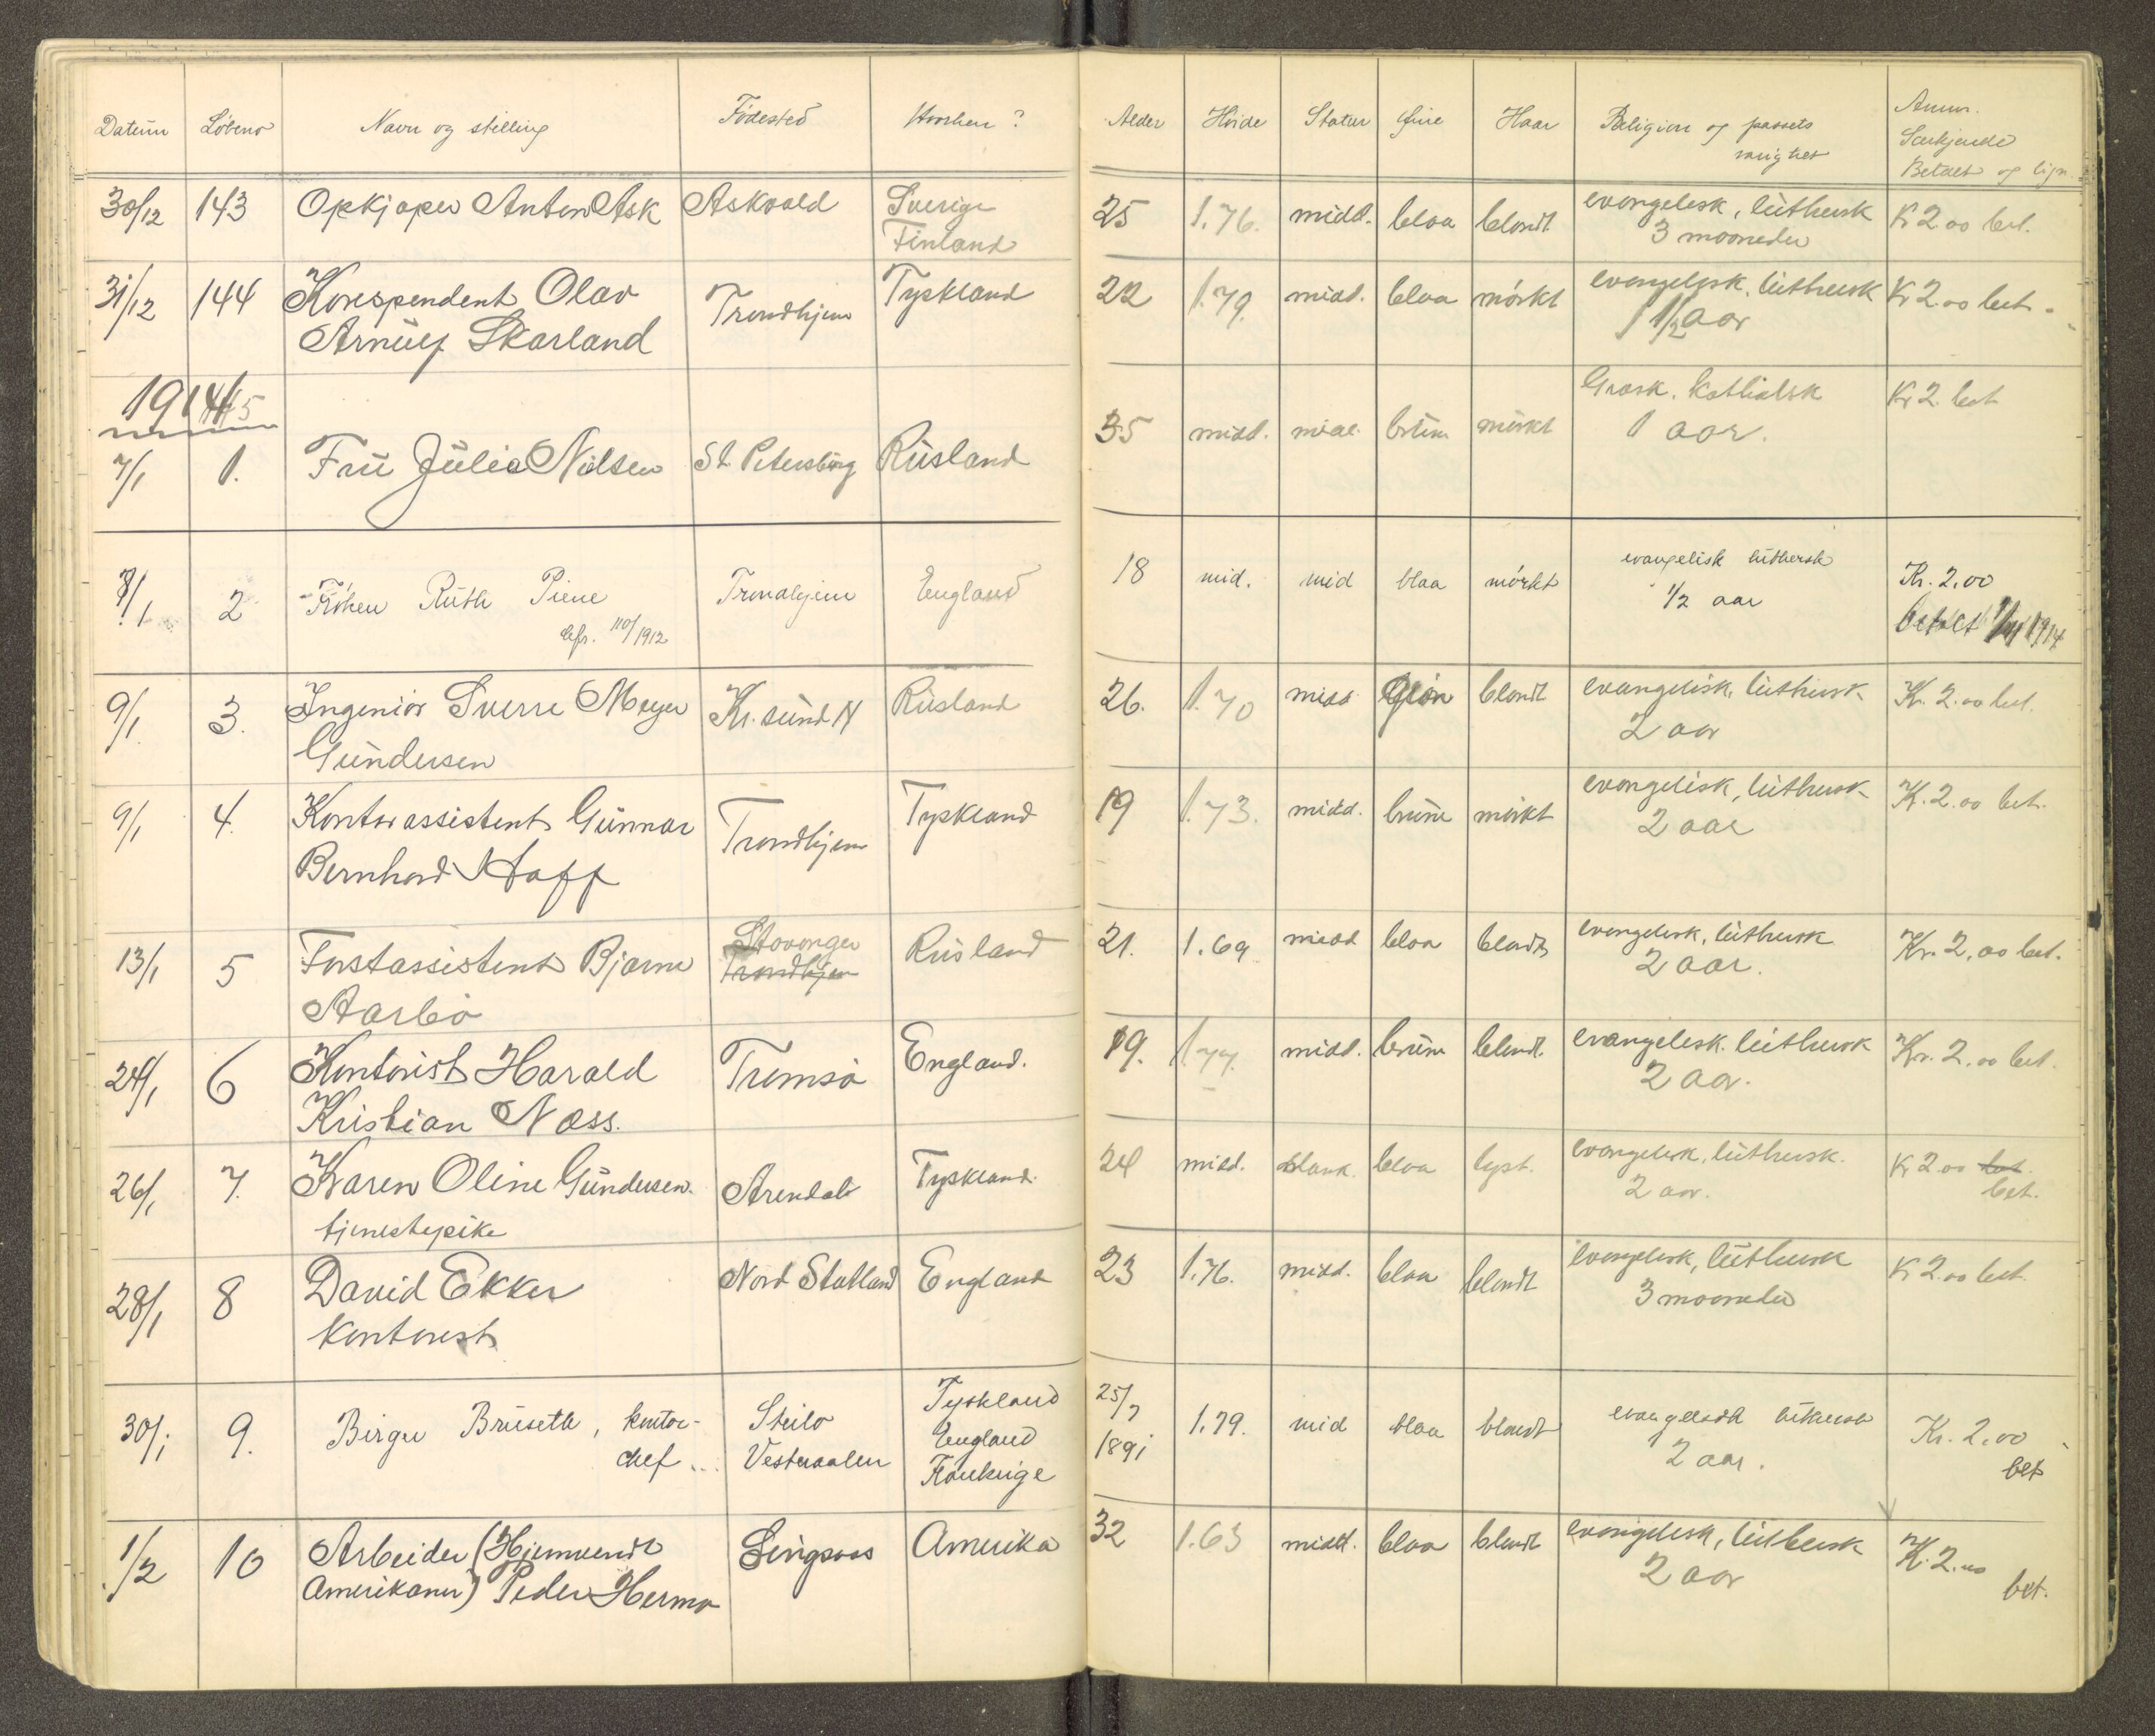 Datum Løbeno Navn og stilling Fødested Hvorhen? Alder Høide Statur Øine Haar Religion og passets varighet Anm. Særkjende Betalt og lign.
30/12 143 Opkjøper Anton Ask Askvold Sverige Finland 25 1.76. midd. blaa blondt evangelisk, luthersk 3 maaneder Kr 2.00 bet.
31/12 144 Korespondent Olav Arnulf Skarland Trondhjem Tyskland 22 1.79. midd. blaa mørkt evangelisk, luthersk 1 1/2 aar Kr 2.00 bet.
1914/15
7/1 1. Fru Julie Nilsen St. Petersburg Rusland 35 midd. midd. brune mørkt Græsk. Katholsk 1 aar. Kr 2. bet
8/1 2 Frøken Ruth Piene cfr. 110/1912 Trondhjem England 18 mid. mid blaa mørkt evangelisk luthersk 1/2 aar Kr. 2,00 betalt 1914
9/1 3. Ingeniør Sverre Meyer Gundersen Kr.sund N Rusland 26. 1.70 midd blondt evangelisk, luthersk 2 aar Kr. 2.00 bet.
9/1 4. Kontorassistent Gunnar Bernhard Hoff Trondhjem Tyskland 19 1.73. midd. brune mørkt evangelisk, luthersk 2 aar Kr. 2.00 bet.
13/1 5 Forstassistent Bjarne Aarbø Stavanger Trondhjem Rusland 21. 1.69 midd blaa blondt evangelisk, luthersk 2 aar. Kr. 2,00 bet.
24/1 6 Kontorist Harald Kristian Næss. Tromsø England. 19. 1.77. midd. brune blondt. evangelisk. luthersk 2 aar. Kr. 2.00 bet.
26/1 7. Karen Oline Gundersen. tjenestepike Arendal Tyskland. 24 midd. slank. blaa lyst. evangelisk, luthersk. 2 aar. Kr 2.00 bet. bet.
28/1 8 David Ekker Kontorist Nord Statland England 23 1.76. midd. blaa blondt evangelisk, luthersk 3 maaneder Kr 2.00 bet.
30/1 9. Birger Bruseth, kontorchef... Steilo Vesteraalen Tyskland England Frankrige 25/7 1891 1.79. mid blaa blondt evangelisk luthersk 2 aar. Kr. 2,00 bet
1/2 10 Arbeider (Hjemvendt Amerikaner) Peder Hermo Singsaas Amerika 32 1.63 midd. blaa blondt evangelisk, luthersk 2 aar Kr. 2.00 bet.